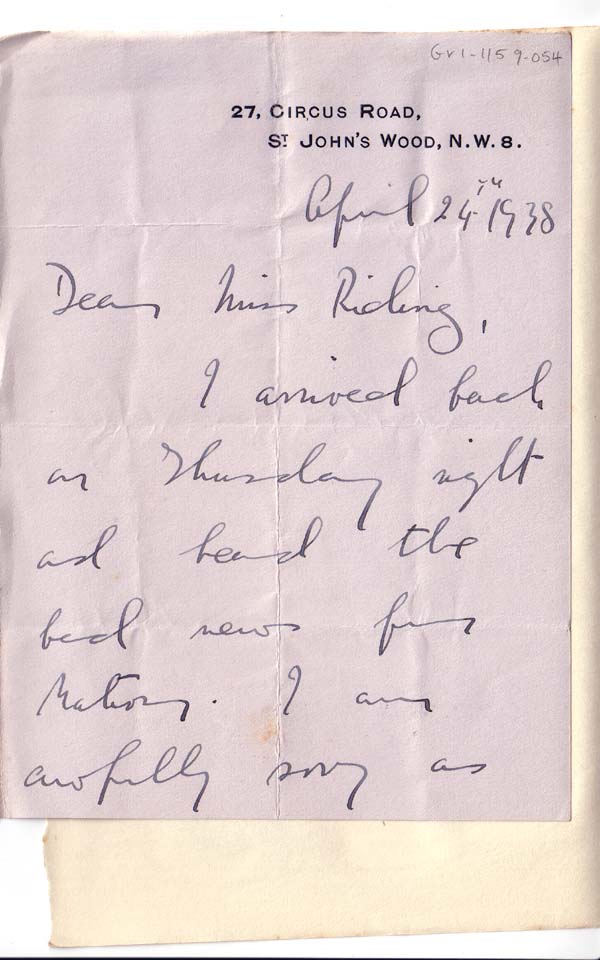 GV1-1159-054
27, CIRCUS ROAD,
ST JOHN'S WOOD, N.W.8.
April 24TH 1938
Dear Miss Riding,
I arrived back
on Thursday night
and heard the
bad news from
Matron. I am
awfully sorry as